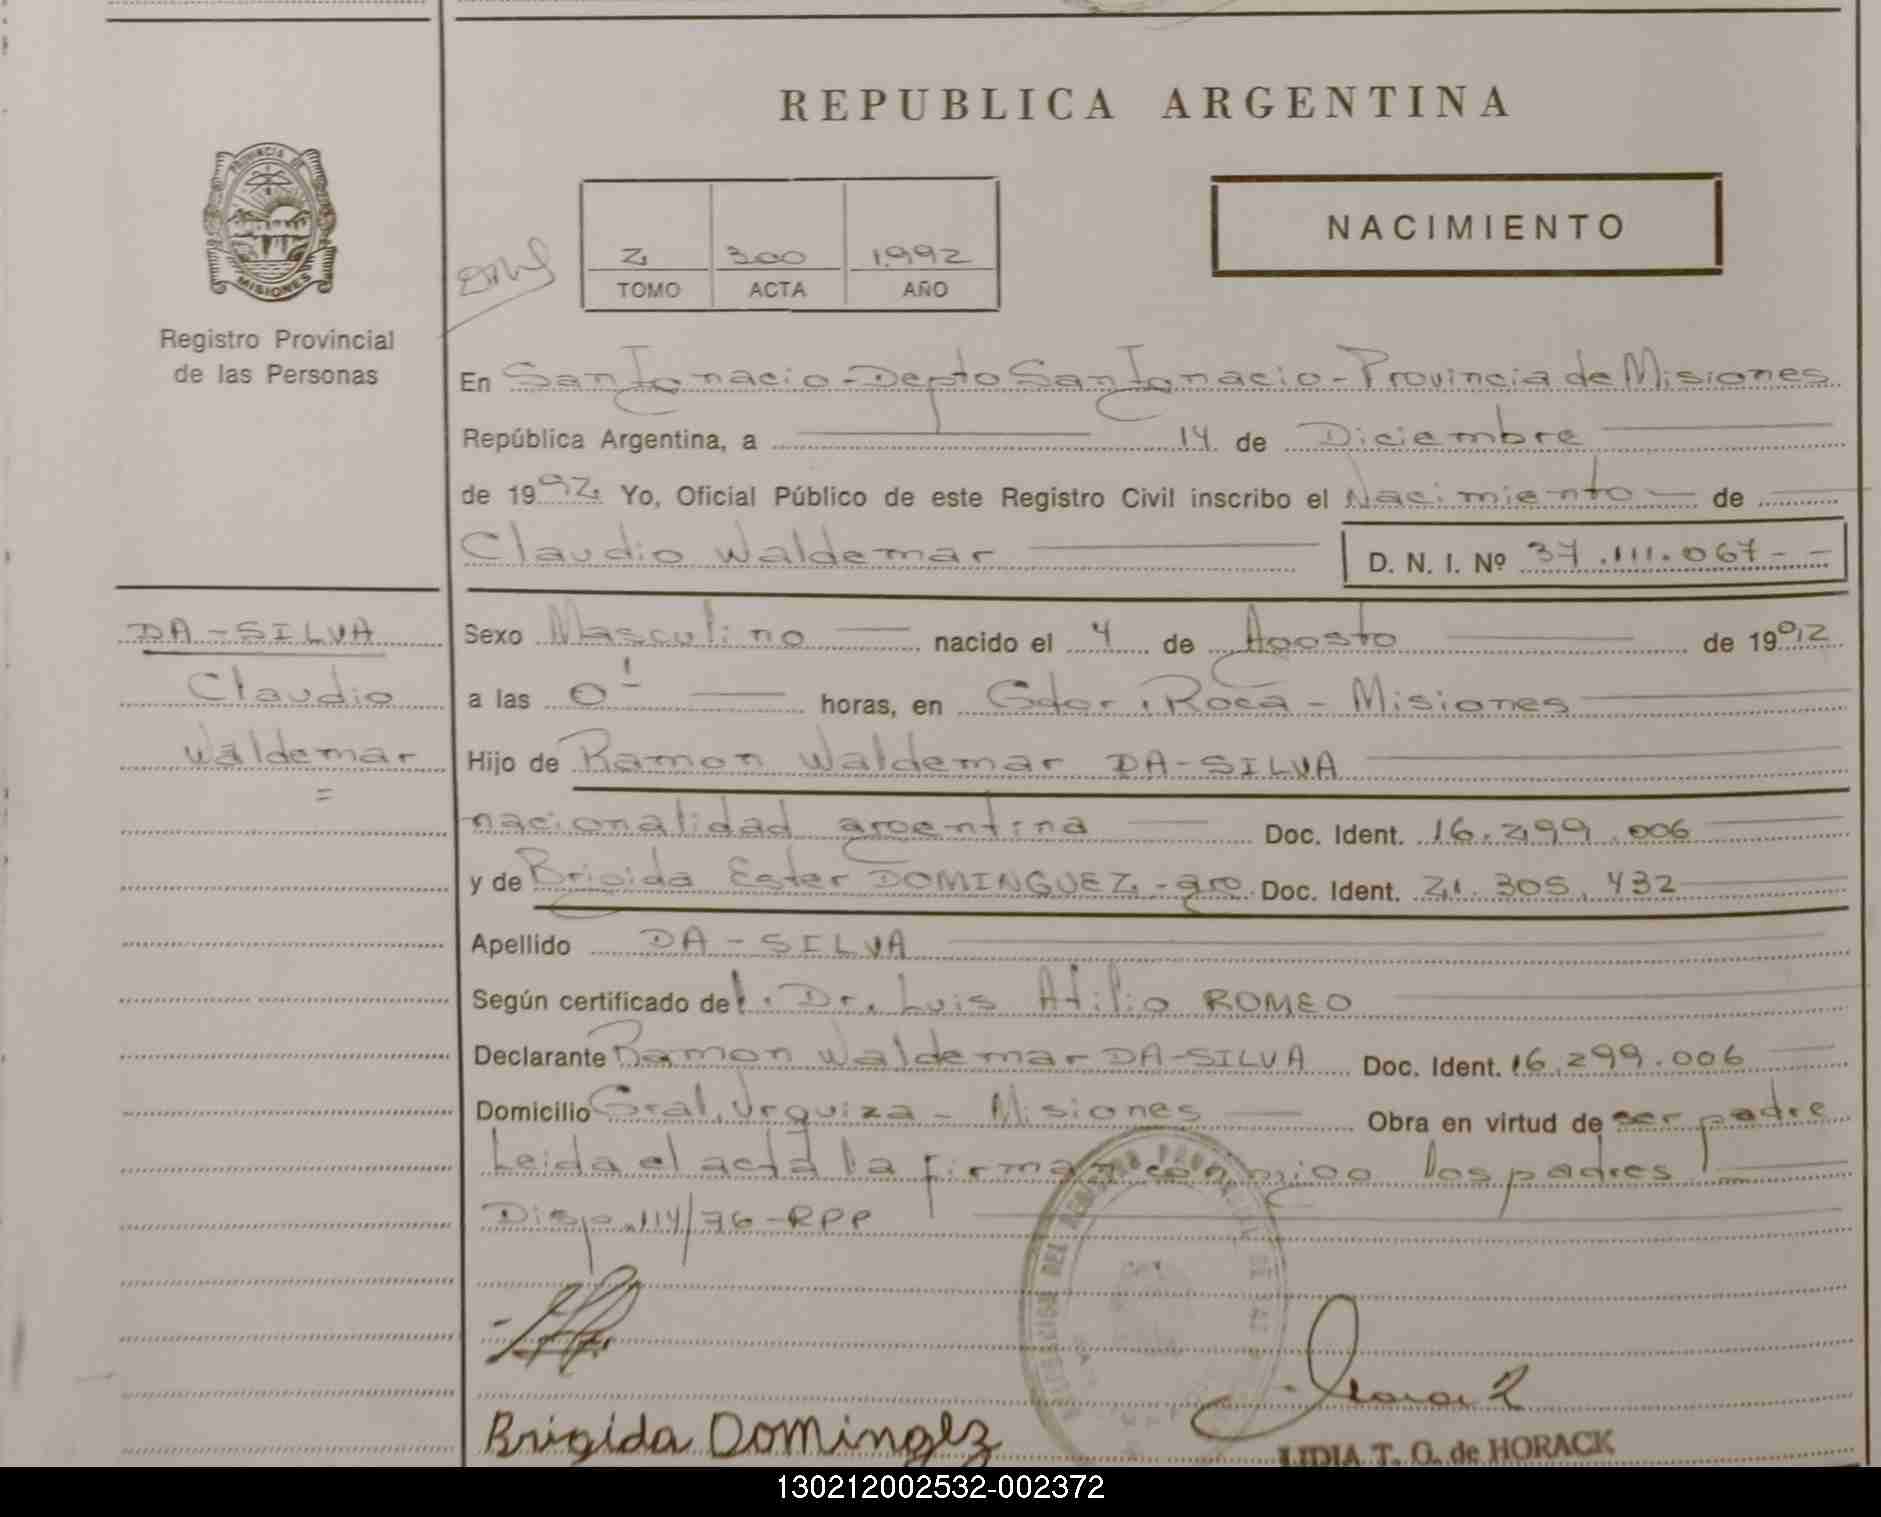 REPUBLICA ARGENTINA
PROVINCIA DE
MISIONES
Registro Provincial
de las Personas
2 300 1992
TOMO ACTA AÑO
NACIMIENTO
En San Ignacio - Depto San Ignacio - Provincia de Misiones
República Argentina, a 14 de Diciembre
de 1992 Yo, Oficial Público de este Registro Civil inscribo el Nacimiento de
Claudio Waldemar D. N. I. Nº 37.111.067 - -
DA-SILVA
Claudio
Waldemar
Sexo Masculino nacido el 4 de Agosto de 1992
a las 0 horas, en Gdor. Roca - Misiones
Hijo de Ramon Waldemar DA-SILVA
nacionalidad argentina Doc. Ident. 16.299.006
y de Brigida Ester DOMINGUEZ - arg. Doc. Ident. 21.305.432
Apellido DA-SILVA
Según certificado del Dr. Luis Atilio ROMEO
Declarante Ramon Waldemar DA-SILVA Doc. Ident. 16.299.006
Domicilio Gral. Urquiza - Misiones Obra en virtud de ser padre
Leida el acta la firman conmigo los padres
Disp. 114/76-RPP
Brigida Dominglez
LIDIA T. G. de HORACK
130212002532-002372